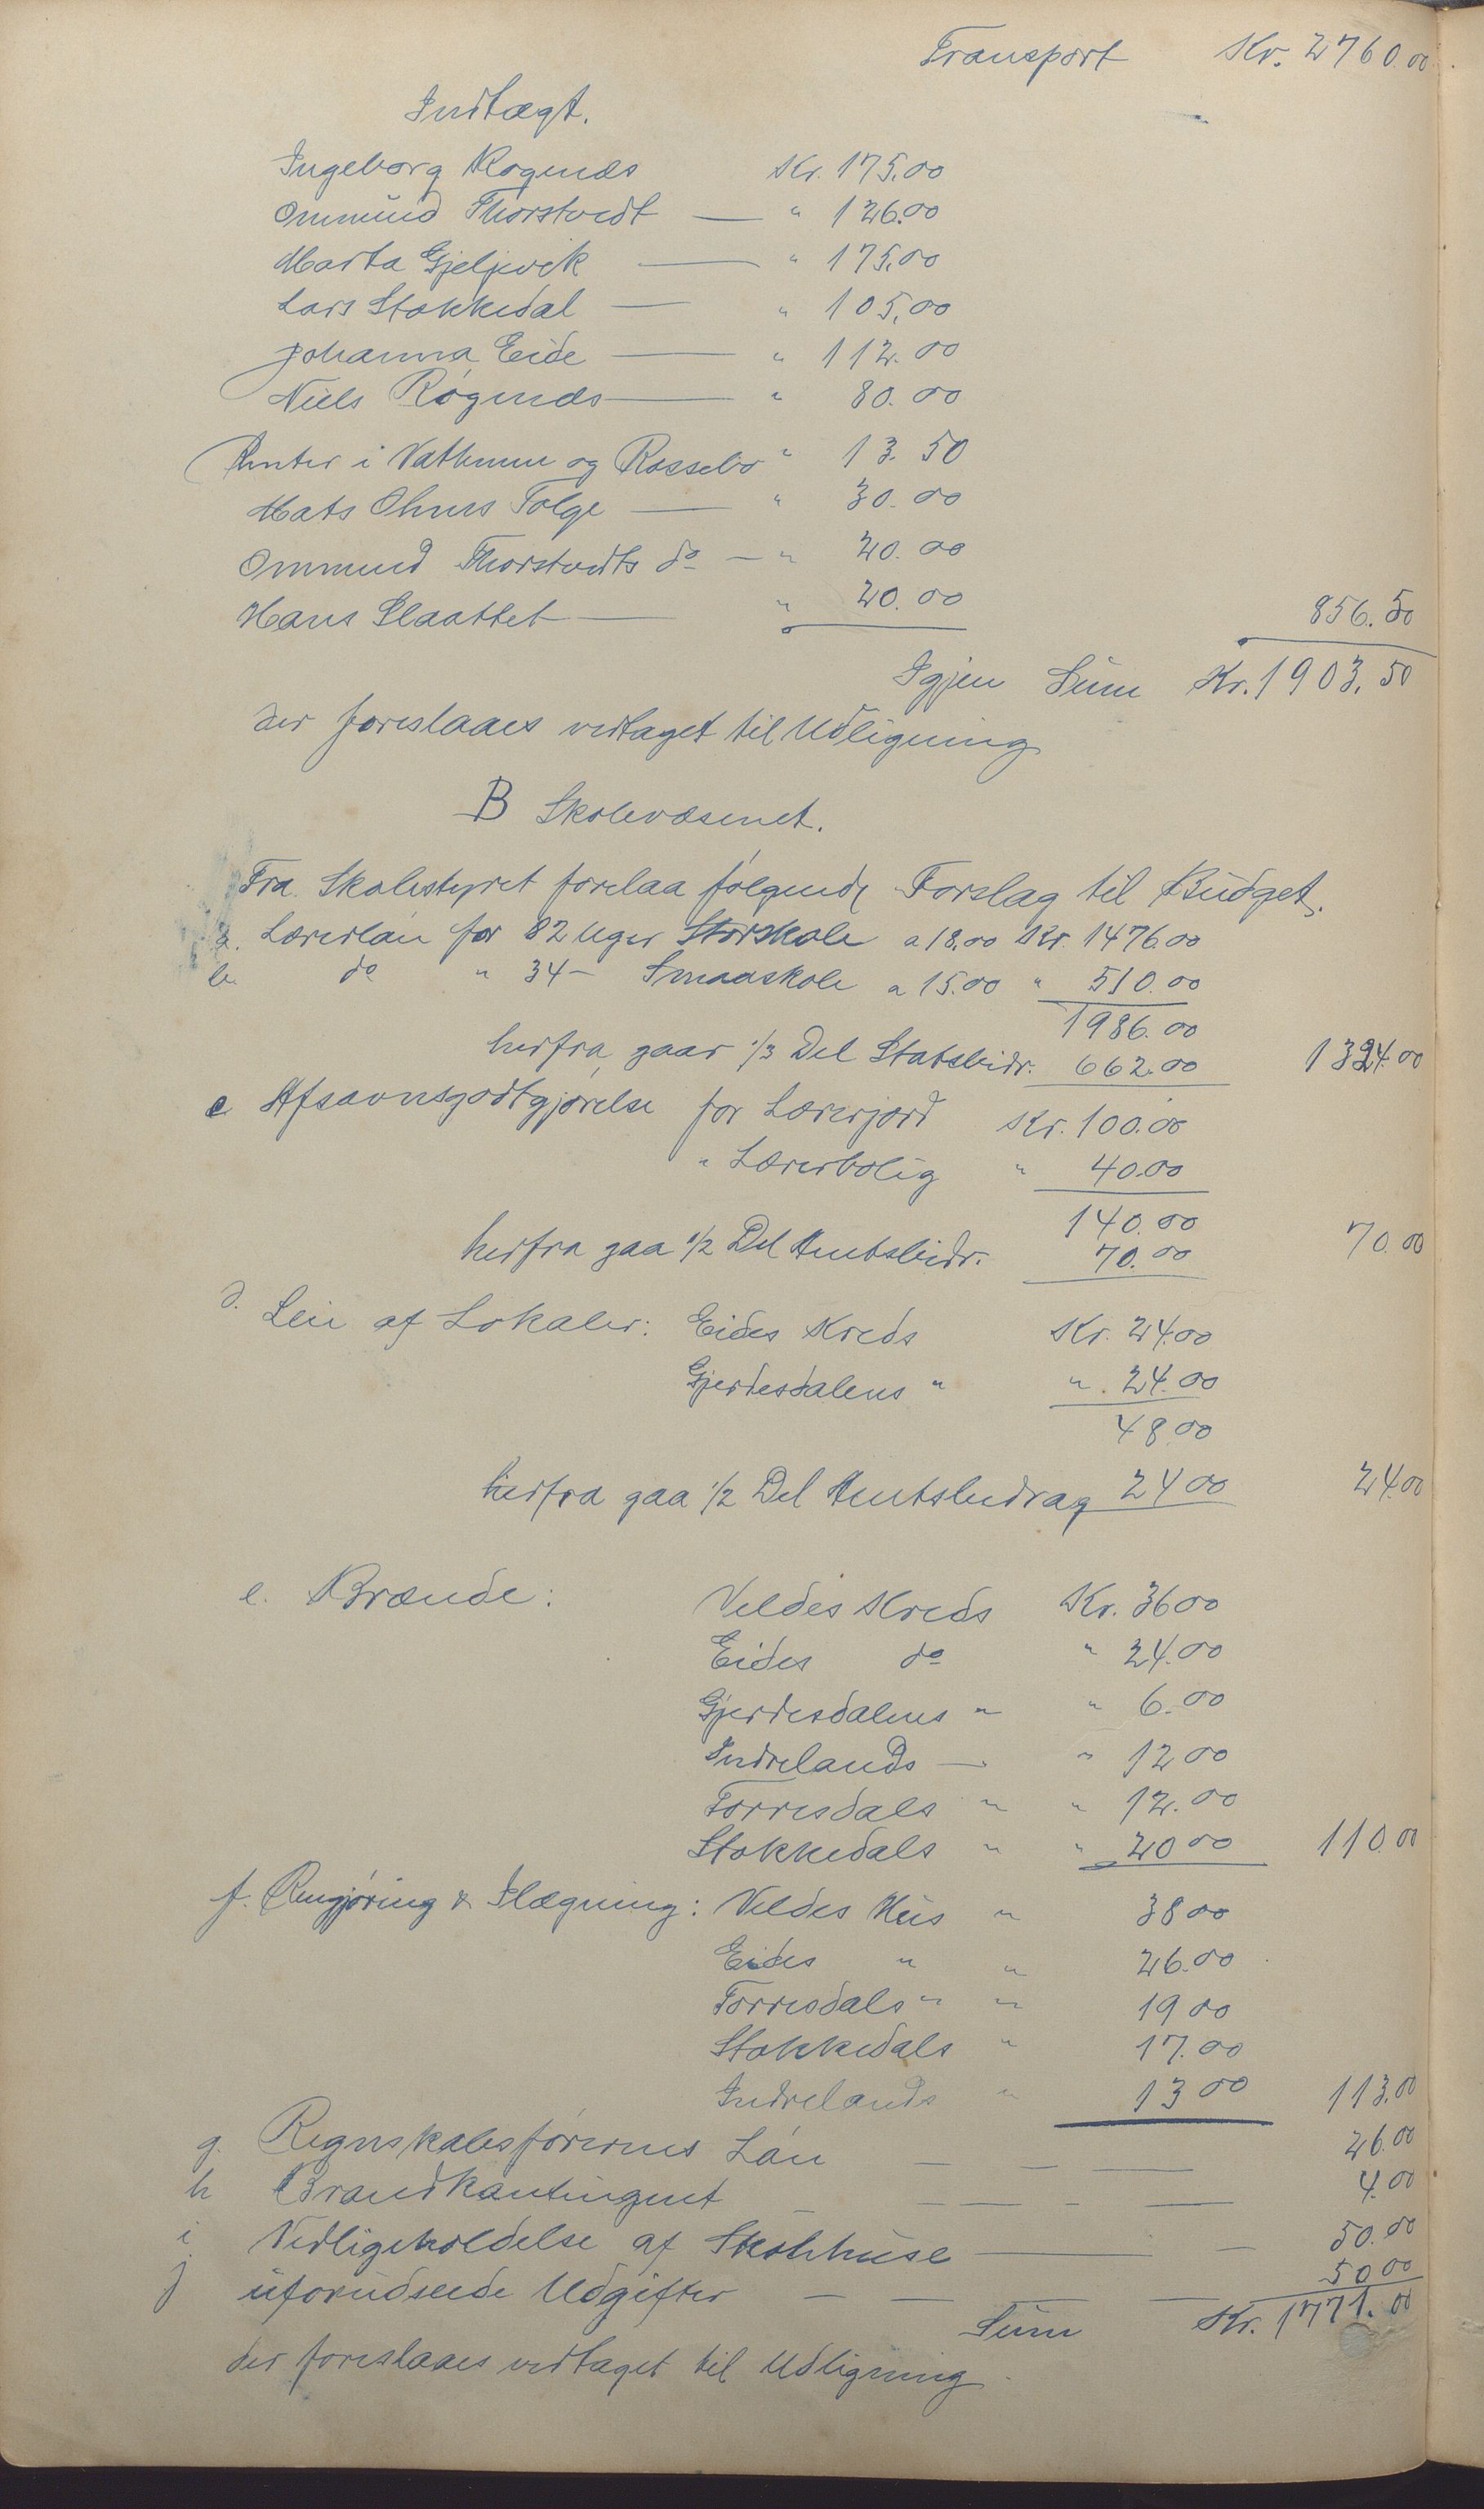 Transport Kr. 2760.00
Indtægt.
Ingeborg Røgenæs Kr. 175.00
Ommund Thorstvedt — " 126.00
Marta Gjeljevik — " 175.00
Lars Stokkedal — " 105.00
Johanna Eide — " 112.00
Niels Røgenæs — " 80.00
Renter i Vathnene og Rossebø " 13.50
Mats Ohms Følge — " 30.00
Ommund Thorstvedts do — " 20.00
Hans Slaattet — " 20.00 856.50
Igjen Sum Kr. 1903.50
der foreslaaes vedtaget til Udligning
B Skolevæsenet.
Fra Skolestyret forelaa følgende Forslag til Budget.
a. Lærerløn for 82 Uger Storskole a 18.00 Kr. 1476.00
b. do " 34 — Smaaskole a 15.00 " 510.00
1986.00
herfra gaar 1/3 Del Statsbidr. 662.00 1324.00
c Afsavnsgodtgjørelse for Lærerjord Kr. 100.00
" Lærerbolig " 40.00
140.00
herfra gaa 1/2 Del Amtsbidr. 70.00 70.00
d. Leie af Lokaler: Eides Kreds Kr. 24.00
Gjerdesdalens " " 24.00
48.00
herfra gaa 1/2 Del Amtsbidrag 24 00 24.00
e. Brænde: Veldes Kreds Kr. 36 00
Eides do " 24.00
Gjerdesdalens " " 6.00
Indrelands — " 12 00
Torresdals " " 12.00
Stokkedals " " 20 00 110.00
f. Rengjøring & Ilægning: Veldes Hus " 38 00
Eides " " 26.00
Torresdals " " 19 00
Stokkedals " 17.00
Indrelands " 13 00 113.00
g. Regnskabsførernes Løn — — — 26.00
h Brandkontingent — — — — — 4.00
i Vedligeholdelse af Skolehuse — — 50.00
j uforudseede Udgifter — — — — 50 00
Sum Kr. 1771.00
der foreslaaes vedtaget til Udligning.